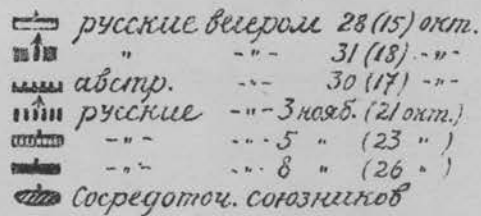 русские вечером 28 (15) окт.
" -"- 31 (18) -"-
австр. -"- 30 (17) -"-
русские -"- 3 нояб. (21 окт.)
-"- -"- 5 " (23 " )
-"- -"- 8 " (26 " )
Сосредоточ. союзников